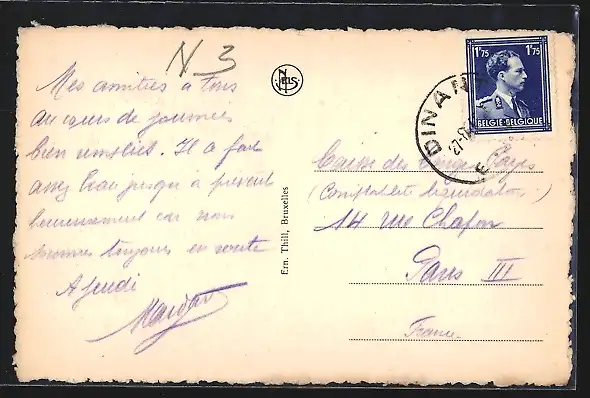 N 3
Mes amitiés à tous
au cours de journées
bien remplies. Il a fait
assez beau jusqu'à présent
heureusement car nous
sommes toujours en route
A jeudi
NELS
Ern. Thill, Bruxelles
1F75 1F75
BELGIE-BELGIQUE
DINANT
Caisse des
(Comptabilité liquidation)
14 rue Chapon
Paris III
France